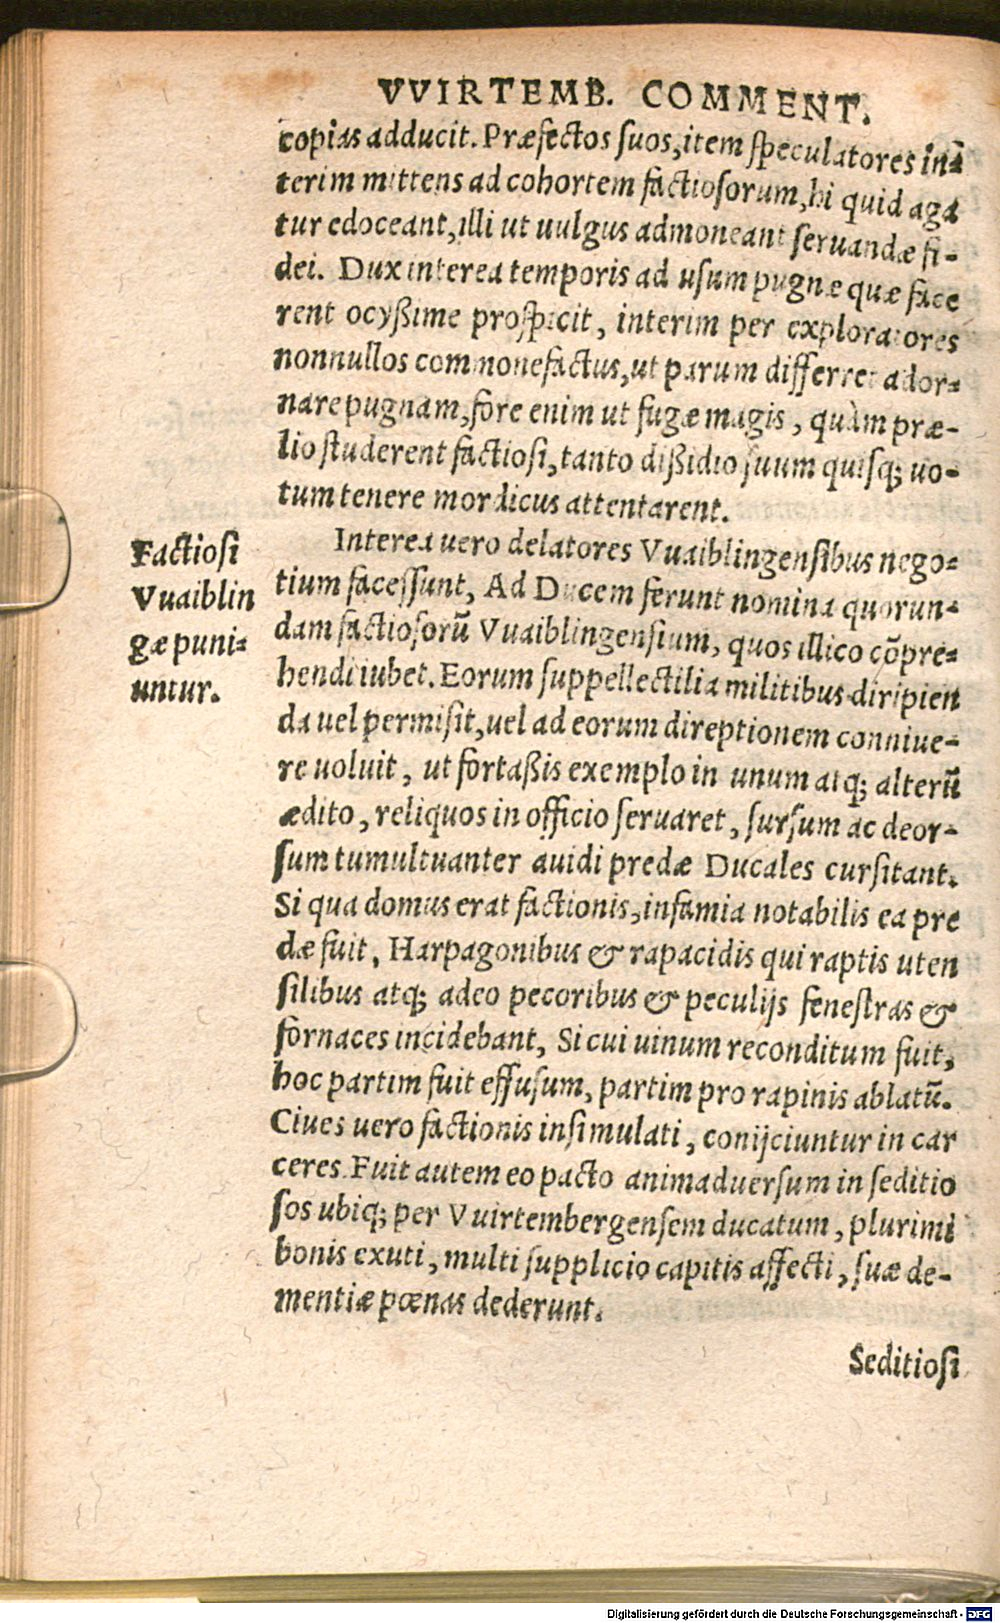 VVIRTEMB. COMMENT.
copias adducit. Præfectos suos, item speculatores in-
terim mittens ad cohortem factiosorum, hi quid aga
tur edoceant, illi ut uulgus admoneant seruandæ fi-
dei. Dux interea temporis ad usum pugnæ quæ face
rent ocyßime prospicit, interim per exploratores
nonnullos commonefactus, ut parum differret ador-
nare pugnam, fore enim ut fugæ magis, quàm præ-
lio studerent factiosi, tanto dißidio suum quisq; uo-
tum tenere mordicus attentarent.
Interea uero delatores Vuaiblingensibus nego-
tium facessunt, Ad Ducem ferunt nomina quorun-
dam factiosorũ Vuaiblingensium, quos illico cõpre-
hendi iubet. Eorum suppellectilia militibus diripien
da uel permisit, uel ad eorum direptionem conniue-
re uoluit, ut fortaßis exemplo in unum atq; alterũ
ædito, reliquos in officio seruaret, sursum ac deor-
sum tumultuanter auidi predæ Ducales cursitant.
Si qua domus erat factionis, infamia notabilis ea pre
dæ fuit, Harpagonibus & rapacidis qui raptis uten
silibus atq; adeo pecoribus & peculijs fenestras &
fornaces incidebant, Si cui uinum reconditum fuit,
hoc partim fuit effusum, partim pro rapinis ablatũ.
Ciues uero factionis insimulati, conijciuntur in car
ceres. Fuit autem eo pacto animaduersum in seditio
sos ubiq; per Vuirtembergensem ducatum, plurimi
bonis exuti, multi supplicio capitis affecti, suæ de-
mentiæ pœnas dederunt.
Seditiosi
Factiosi
Vuaiblin
gæ puni-
untur.
Digitalisierung gefördert durch die Deutsche Forschungsgemeinschaft - DFG